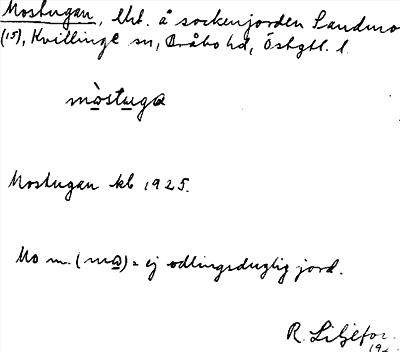 Mostugan, lht. å sockenjorden Sandmo
(15), Kvillinge sn, Bråbo hd, Östgtl. l.
mòstuga
Mostugan kb 1925.
Mo m. (mo) = ej odlingsduglig jord.
R. Liljefor.
19